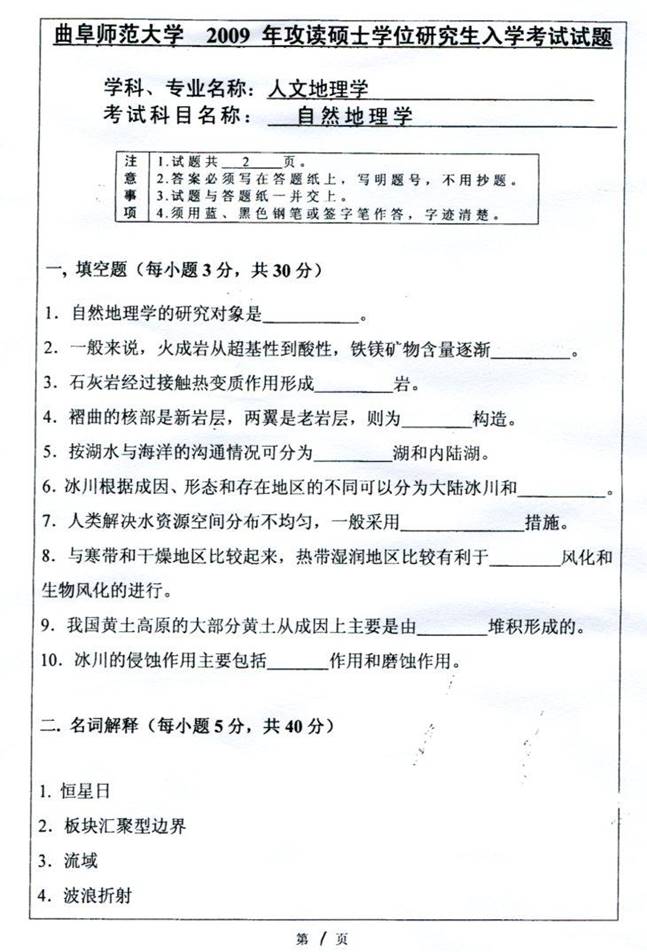 曲阜师范大学 2009 年攻读硕士学位研究生入学考试试题
学科、专业名称：人文地理学
考试科目名称： 自然地理学
注意事项
1.试题共 2 页。
2.答案必须写在答题纸上，写明题号，不用抄题。
3.试题与答题纸一并交上。
4.须用蓝、黑色钢笔或签字笔作答，字迹清楚。
一, 填空题（每小题 3 分，共 30 分）
1．自然地理学的研究对象是__________。
2．一般来说，火成岩从超基性到酸性，铁镁矿物含量逐渐________。
3．石灰岩经过接触热变质作用形成________岩。
4．褶曲的核部是新岩层，两翼是老岩层，则为_______构造。
5．按湖水与海洋的沟通情况可分为________湖和内陆湖。
6. 冰川根据成因、形态和存在地区的不同可以分为大陆冰川和_________。
7．人类解决水资源空间分布不均匀，一般采用_____________措施。
8．与寒带和干燥地区比较起来，热带湿润地区比较有利于_______风化和
生物风化的进行。
9．我国黄土高原的大部分黄土从成因上主要是由_______堆积形成的。
10．冰川的侵蚀作用主要包括______作用和磨蚀作用。
二. 名词解释（每小题 5 分，共 40 分）
1. 恒星日
2．板块汇聚型边界
3．流域
4．波浪折射
第 1 页